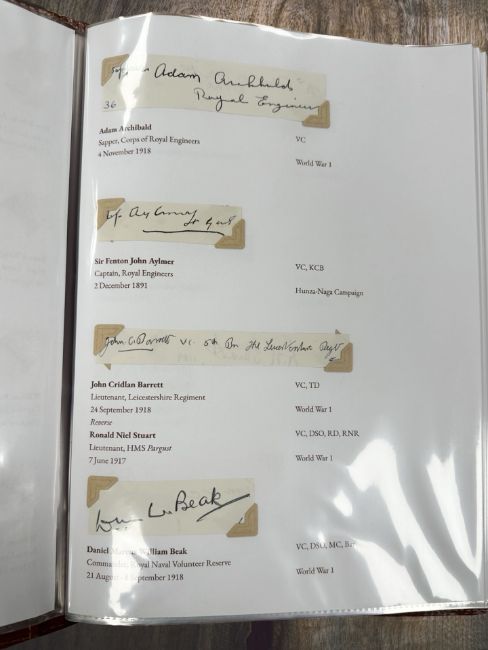 Sapper Adam Archibald
Royal Engineers
36
Adam Archibald
VC
Sapper, Corps of Royal Engineers
4 November 1918
World War 1
Sir Fenton John Aylmer
VC, KCB
Captain, Royal Engineers
2 December 1891
Hunza-Naga Campaign
John C. Barrett VC. 5th Bn The Leicestershire Regt
John Cridlan Barrett
VC, TD
Lieutenant, Leicestershire Regiment
24 September 1918
World War 1
Reverse
Ronald Niel Stuart
VC, DSO, RD, RNR
Lieutenant, HMS Pargust
7 June 1917
World War 1
Beak
Daniel William Beak
VC, DSO, MC,
Commander, Royal Naval Volunteer Reserve
21 August - September 1918
World War 1